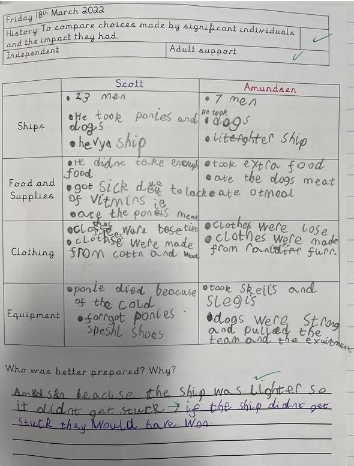 Friday 18th March 2022
History To compare choices made by significant individuals
and the impact they had.
Independent
Adult support
Scott
Amundsen
Ships
• 23 men
• He took ponies and
dogs
• hevye ship
• 7 men
• He took
dogs
• liteghter ship
Food and
Supplies
• He didnt take enough
food
• got sick to lack
of vitmins
• ate the ponies meat
• took extra food
• ate the dogs meat
• ate otmeal
Clothing
• clothes were
• clothse were made
from cottn and
• clothes were lose
• clothes were made
from furr.
Equipment
• ponie died beacuse
of the cold
• forrgot ponies
speshl shoes
• took skeiis and
slegis
• dogs were strong
and pulled the
team and the
Who was better prepared? Why?
beacuse the ship was lighter so
it didnt get stuck → if the ship didnt get
stuck they would have won.